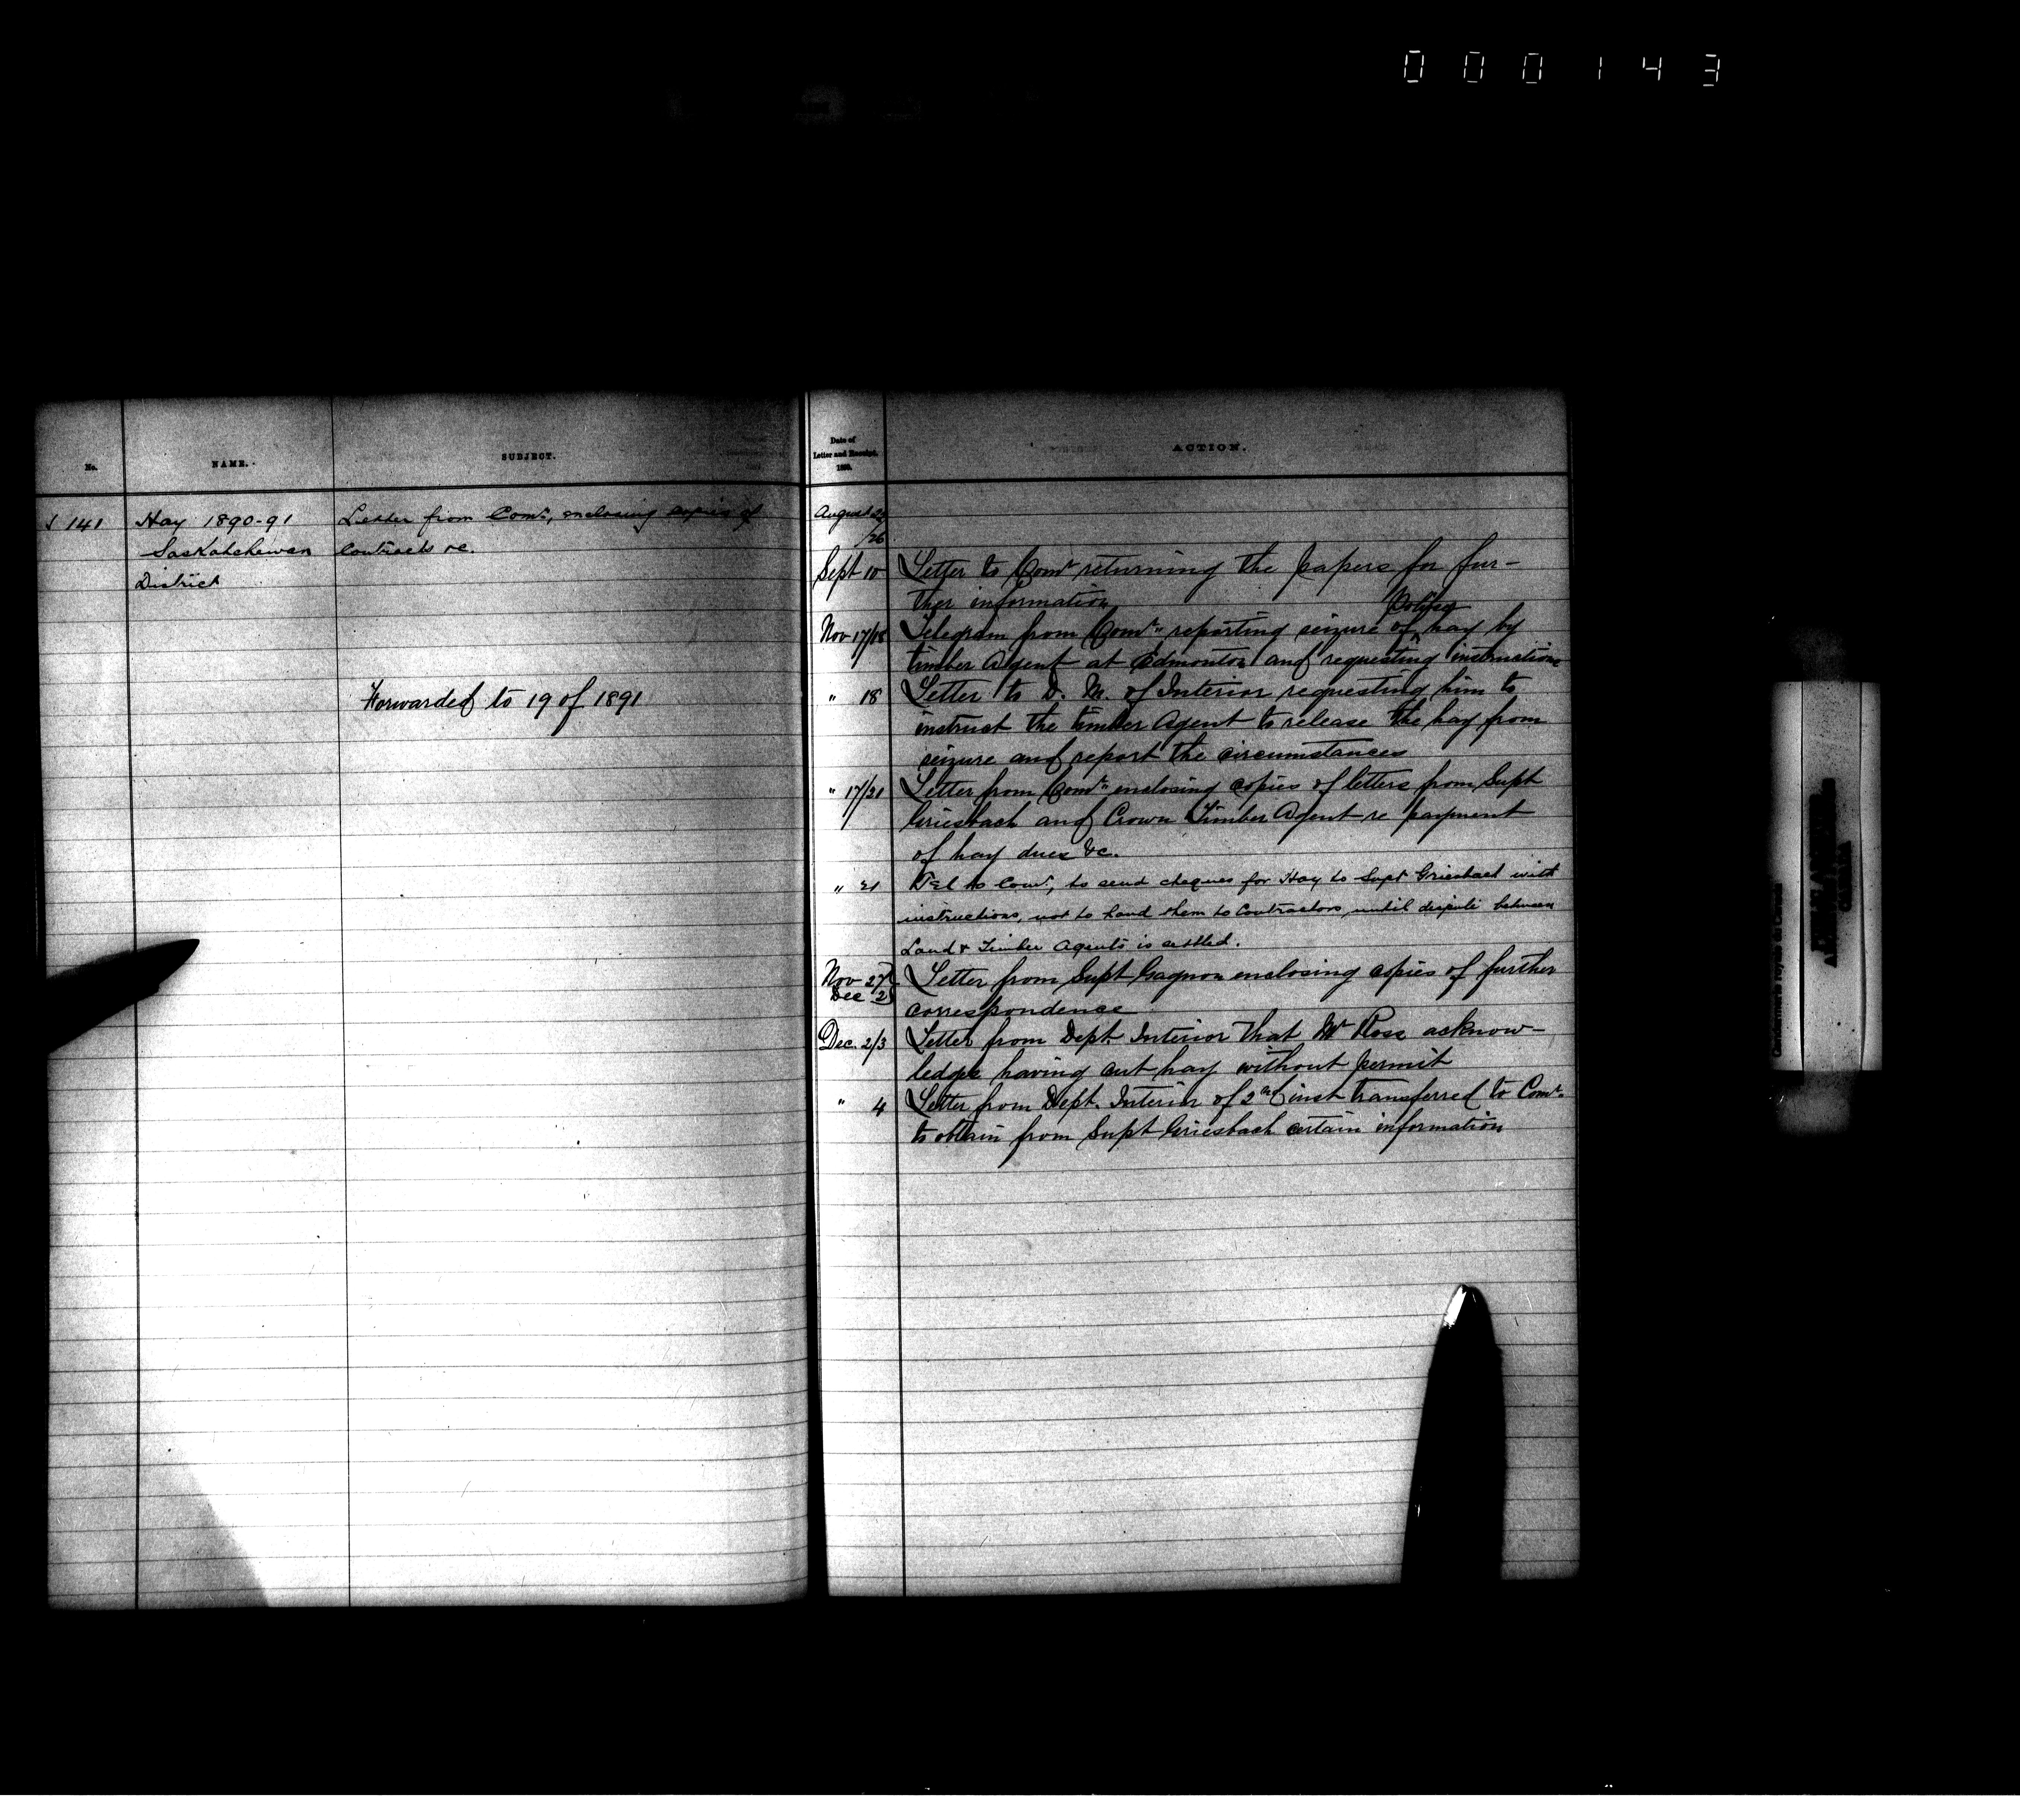 000143
No.
NAME.
SUBJECT.
141
Hay 1890-91
Saskatchewan
District
Letter from Comr, enclosing copies of
Contracts &c.
Forwarded to 19 of 1891
Date of
Letter and Receipt,
1890.
ACTION.
August
/26
Sept 10 Letter to Comr returning the papers for fur-
ther information
Police
Nov 17/18 Telegram from Comr reporting seizure of hay by
timber Agent at Edmonton and requesting instructions
" 18 Letter to D. M. of Interior requesting him to
instruct the timber Agent to release the hay from
seizure and report the circumstances
" 17/21 Letter from Comr enclosing copies of letters from Supt
Griesbach and Crown Timber Agent re payment
of hay dues &c.
" 21 Tel to Comr, to send cheques for Hay to Supt Griesbach with
instructions, not to hand them to Contractors, until dispute between
Land & Timber Agents is settled.
Nov 27 Letter from Supt Gagnon enclosing copies of further
Dec 2
correspondence
Dec. 2/3 Letter from Dept Interior that Mr Ross acknow-
ledges having cut hay without permit
" 4 Letter from Dept. Interior of 2nd inst transferred to Comr
to obtain from Supt Griesbach certain information